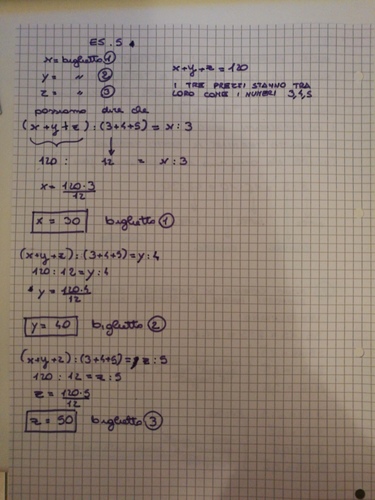 ES. 5
x = biglietto 1
y = " 2
z = " 3
x+y+z = 120
I TRE PREZZI STANNO TRA
LORO COME I NUMERI 3,4,5
possiamo dire che
(x+y+z) : (3+4+5) = x : 3
120 : 12 = x : 3
x = 120·3
12
x = 30 biglietto 1
(x+y+z) : (3+4+5) = y : 4
120 : 12 = y : 4
y = 120·4
12
y = 40 biglietto 2
(x+y+z) : (3+4+5) = z : 5
120 : 12 = z : 5
z = 120·5
12
z = 50 biglietto 3